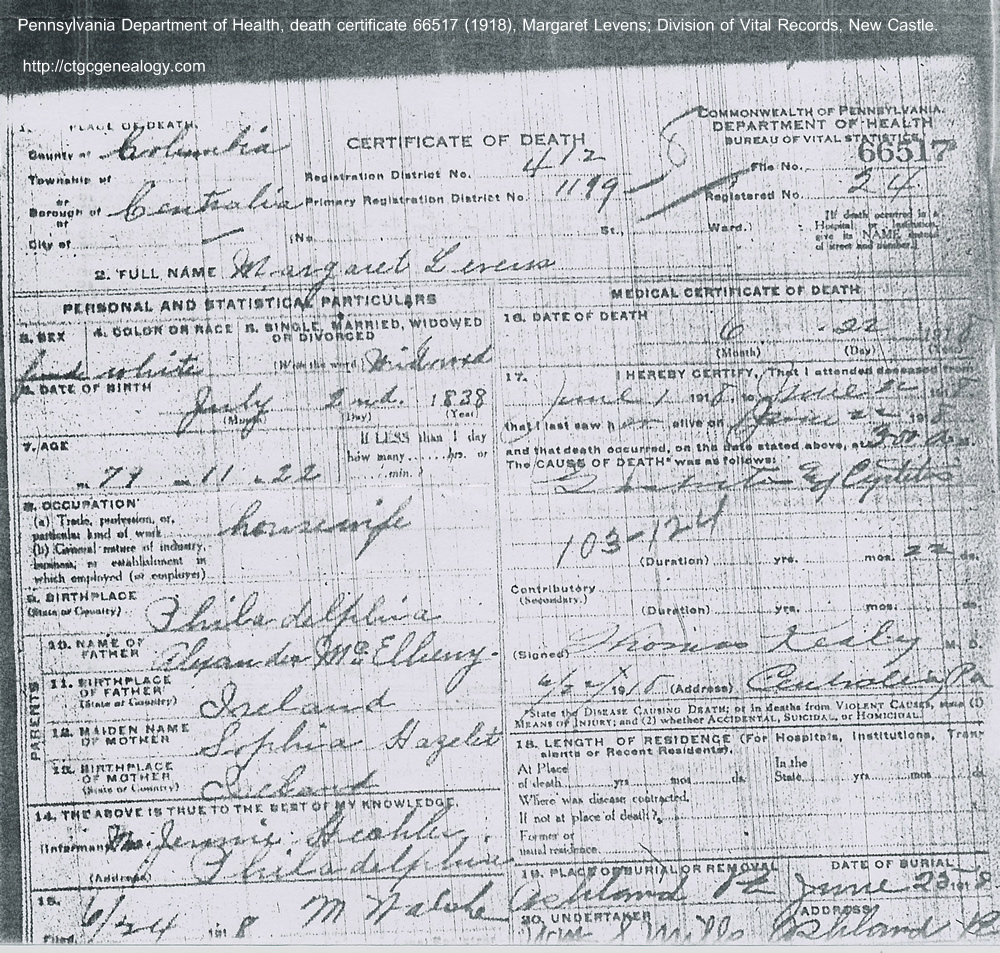 Pennsylvania Department of Health, death certificate 66517 (1918), Margaret Levens; Division of Vital Records, New Castle.
http://ctgcgenealogy.com
1. PLACE OF DEATH.
County of Columbia
Township of
or
Borough of Centralia
or
City of
CERTIFICATE OF DEATH
Registration District No. 412
Primary Registration District No. 1199
(No. St., Ward.)
COMMONWEALTH OF PENNSYLVANIA.
DEPARTMENT OF HEALTH
BUREAU OF VITAL STATISTICS
File No. 66517
Registered No. 24
[If death occurred in a
Hospital or Institution,
give its NAME instead
of street and number.]
2. FULL NAME Margaret Levens
PERSONAL AND STATISTICAL PARTICULARS
3. SEX
4. COLOR OR RACE white
5. SINGLE, MARRIED, WIDOWED
OR DIVORCED
(Write the word) Widowed
6. DATE OF BIRTH
July 2nd. 1838
(Month) (Day) (Year)
7. AGE
79 11 22
If LESS than 1 day
how many hrs. or
min.
8. OCCUPATION
(a) Trade, profession, or,
particular kind of work
housewife
(b) General nature of industry,
business, or establishment in
which employed (or employer)
9. BIRTHPLACE
(State or Country)
Philadelphia
10. NAME OF
FATHER
Alexander McElheny.
PARENTS
11. BIRTHPLACE
OF FATHER
(State or Country)
Ireland
12. MAIDEN NAME
OF MOTHER
Sophia Hazelet
13. BIRTHPLACE
OF MOTHER
(State or Country)
Ireland
14. THE ABOVE IS TRUE TO THE BEST OF MY KNOWLEDGE.
(Informant) Jennie
(Address) Philadelphia
15.
Filed 6/24 1918 M Walsh
MEDICAL CERTIFICATE OF DEATH
16. DATE OF DEATH
6 - 22 1918
(Month) (Day) (Year)
17. I HEREBY CERTIFY, That I attended deceased from
June 1 1918, to June 22 1918
that I last saw her alive on June 22 1918
and that death occurred, on the date stated above, at 300
The CAUSE OF DEATH* was as follows:
103-124
(Duration) yrs. mos. 22 ds.
Contributory
(Secondary)
(Duration) yrs. mos. ds.
(Signed) Thomas M. D.
6/22/1918 (Address) Centralia, Pa
*State the DISEASE CAUSING DEATH; or in deaths from VIOLENT CAUSES, state (1)
MEANS OF INJURY; and (2) whether ACCIDENTAL, SUICIDAL, or HOMICIDAL.
18. LENGTH OF RESIDENCE (For Hospitals, Institutions, Tran-
sients or Recent Residents).
At Place
of death yrs mos ds.
In the
State yrs mos ds.
Where was disease contracted,
If not at place of death?
Former or
usual residence
19. PLACE OF BURIAL OR REMOVAL
Ashland Pa
DATE OF BURIAL
June 25 1918
20. UNDERTAKER
Wm S Mills
ADDRESS
Ashland Pa